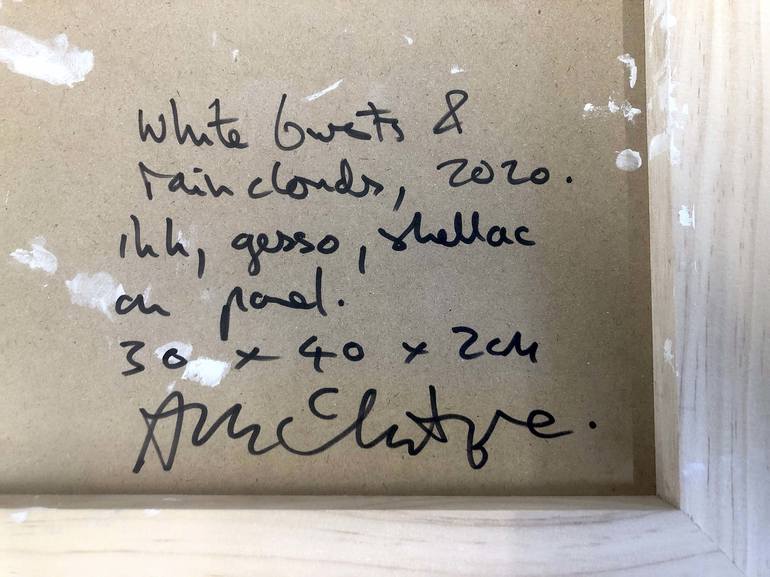 White bursts &
rain clouds, 2020.
ink, gesso, shellac
on panel.
30 x 40 x 2cm
A McIntyre.